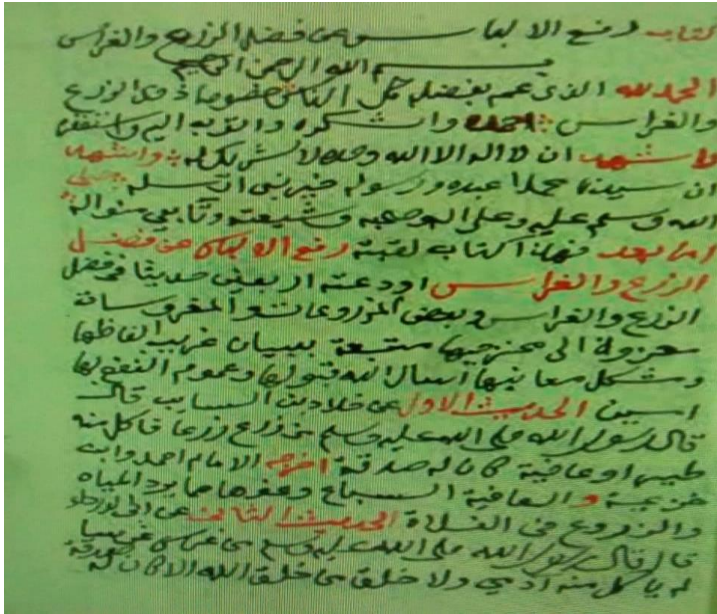 كتاب رفع الالباس عن فضل الزرع والغراس
بسم الله الرحمن الرحيم
الحمد لله الذى عم بفضله كل الناس خصوصا ذوى الزرع
والغراس احمده واشكره واتوب اليه واستغفره
واشهد ان لا اله الا الله وحده لا شريك له واشهد
ان سيدنا محمدا عبده ورسوله خير نبى ارسله صلى
الله وسلم عليه وعلى اله وصحبه وشيعته وتابعي منواله
اما بعد فهذا كتاب لقبته رفع الالباس عن فضل
الزرع والغراس اودعته اربعين حديثا فى فضل
الزرع والغراس وبعض المزروعات والمغروسات
معزوة الى مخرجيها متبعة ببيان غريب الفاظها
ومشكل معانيها اسال الله قبولها وعموم النفع بها
امين الحديث الاول عن خلاد بن السايب قال
قال رسول الله صلى الله عليه وسلم من زرع زرعا فاكل منه
طير او عافية كان له صدقة اخرجه الامام احمد وابن
خزيمة والعافية السباع وغيرها مما يرد المياه
والزروع فى الفلاة الحديث الثانى عن ابى الدرداء
قال قال رسول الله صلى الله عليه وسلم من غرس غرسا
لم ياكل منه ادمي ولا خلق من خلق الله الا كان له صدقة